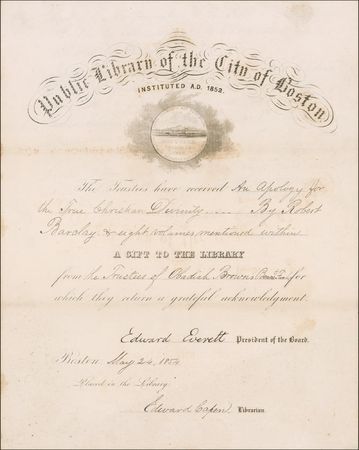 Public Library of the City of Boston
INSTITUTED A.D. 1852.
The Trustees have received An Apology for
the True Christian Divinity By Robert
Barclay & eight volumes mentioned within
A GIFT TO THE LIBRARY
from the Trustees of Obadiah Brown's for
which they return a grateful acknowledgment.
Edward Everett President of the Board.
Boston May 24, 1854
Placed in the Library.
Edward Capen Librarian.